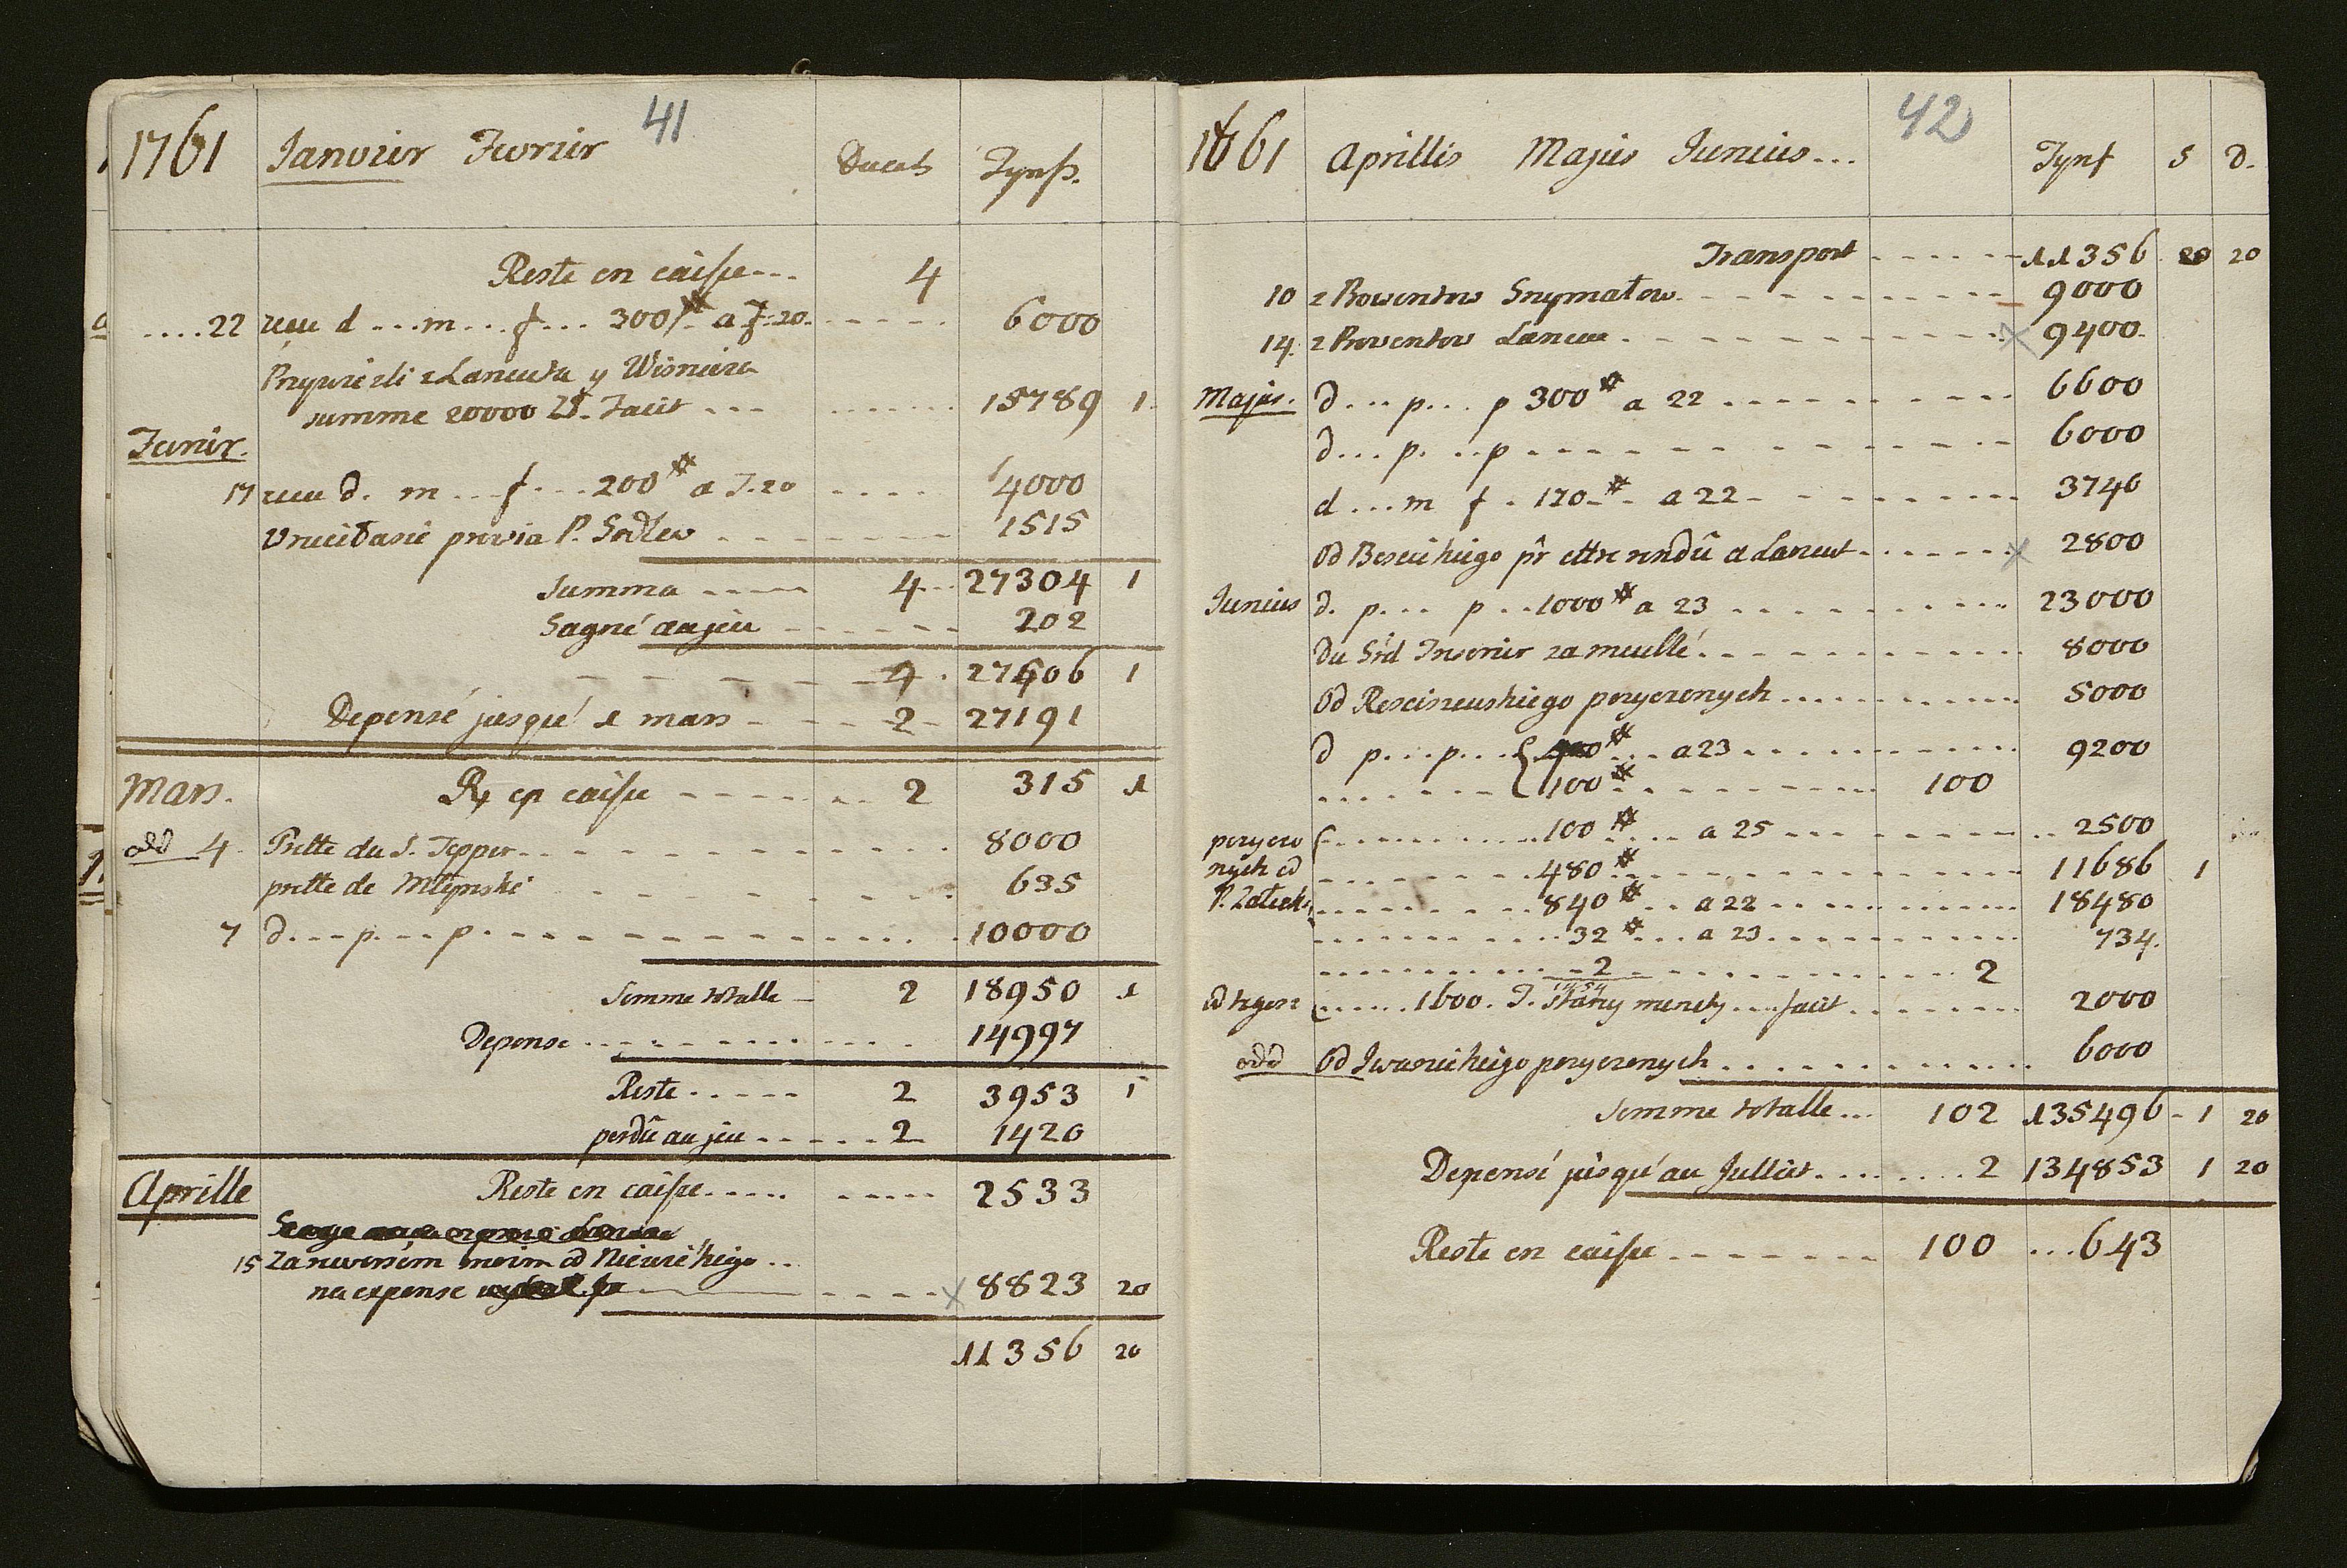 41
1761 Janvier Fevrier Ducats Tynfs.
Reste en caisse... 4
....22 recu d...m...f... 300# a T.20. 6000
Przywiezli z Lancuta y Wisnicza
summe 20000 Zł. Facit ... 15789 1
Fevrir.
17 recu d. m...f...200# a T.20 .... 4000
Wrucił sasie P. Sodlew 1515
Summa ..... 4... 27304 1
Gagné au jeu 202
4. 27506 1
Depensé jusqu' 1 mars - - - 2 - 27191
Mars. Rx en caisse - - - 2 315 1
odd 4. Prette du S. Tepper 8000
prette de Młynski 635
7 d....p....p. 10000
Somme totalle - 2 18950 1
Depense ........ 14997
Reste ..... 2 3953 1
perdû au jeu ..... 2 1420
Aprille Reste en caisse ..... 2533
15 moim od
na expense 8823 20
11356 20
42
1761 Aprillis Majus Junius... Tynf S D.
Transport - - - - 11356 20 20
10 z Prowentow 9000
14. z Prowentow Lancu 9400.
Majus. d...p...p 300# a 22 6600
d...p...p 6000
d...m f. 170# a 22 3740
Od pr ettre rendû a Lancut 2800
Junius d. p... p..1000# a 23 23000
Du 8000
Od pozyczonych 5000
d p...p...{400# .. a 23 9200
{100# 100
pozyczo {......100# .... a 25 .. 2500
nych od ......480# 11686 1
P. ......840# .. a 22 18480
......32# ... a 23 734.
......2 2
1454
od {.....1600. T. Stary monety ... facit 2000
odd Od Iwanickiego pozyczonych 6000
Somme totalle... 102 135496 - 1 20
Depensé jusqu' au Julliet ........ 2 134853 1 20
Reste en caisse - - - - 100 ...643